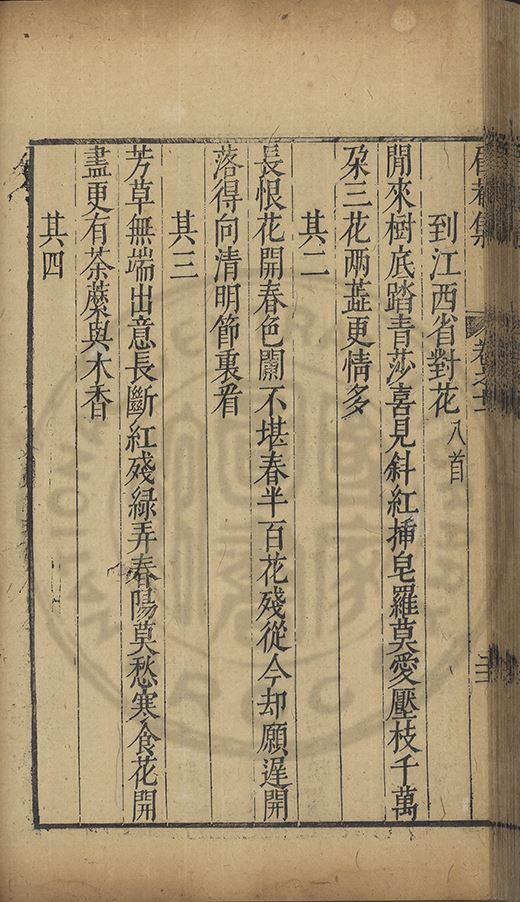 到江西省對花八首
閒來樹底踏青莎喜見斜紅揷皂羅莫愛壓枝千萬
朶三花兩蘂更情多
其二
長恨花開春色闌不堪春半百花殘從今却願遲開
落得向清明節裏看
其三
芳草無端出意長斷紅殘綠弄春陽莫愁寒食花開
盡更有荼蘪與木香
其四